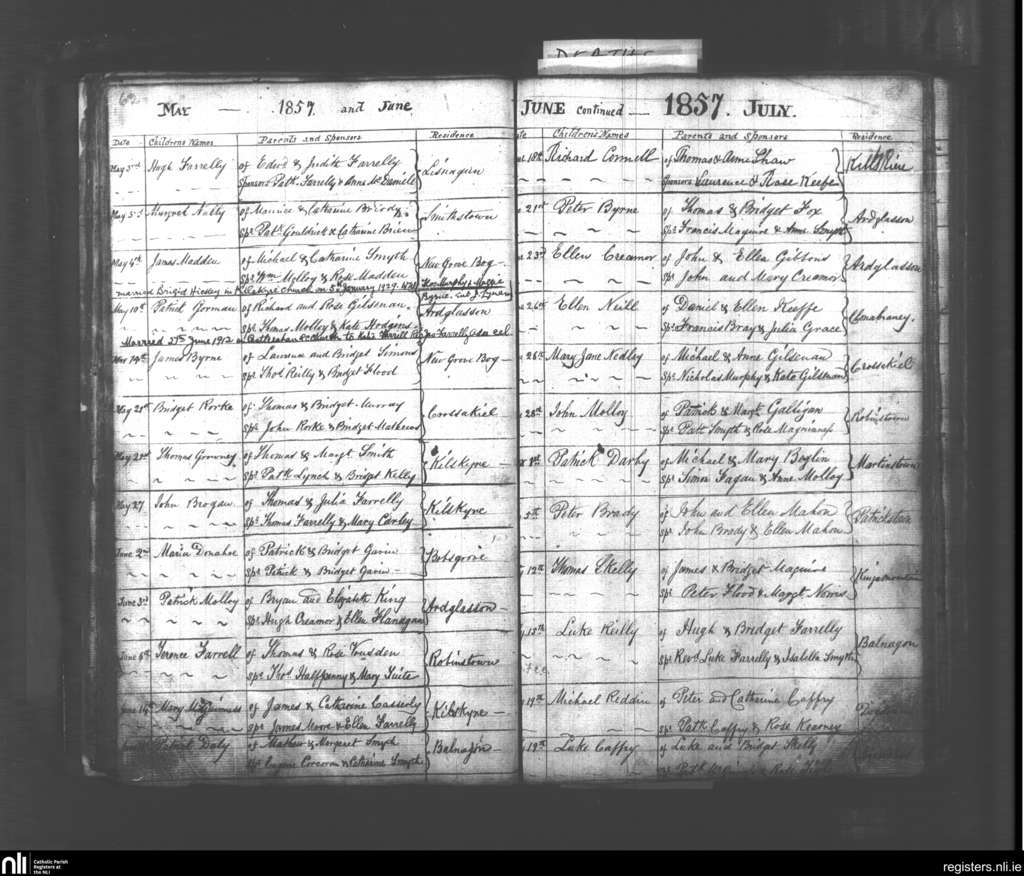 DEATHS
62
MAY — 1857 and June
Date Childrens Names Parents and Sponsors Residence
May 3rd Hugh Farrelly of Edwd & Judith Farrelly Lisnagun
Sponsors Patk. Farrelly & Anne McDaniels
May 3rd Margret Nally of Maurice & Catharine Briody Smithstown
Sps. Patk. Gouldrick & Catharine Brien
May 4th James Madden of Michael & Catharine Smyth New Grove Bog
Sps. Wm Molloy & Rose Madden
married Brigid Hickey in Kilskyre church on 5th January 1929
May 10th Patrick Gorman of Richard and Rose Gilsenan Ardglasson
Sps. Thomas Molloy & Kate Hodgins
Married 27th June 1912 in
James Byrne of Laurence and Bridget Simons New Grove Bog
Sps. Thos Reilly & Bridget Flood
May 21st Bridget Rorke of Thomas & Bridget Murray Crossakiel
Sps. John Rorke & Bridget Mathews
Thomas Growney of Thomas & Margt Smith Kilskyre
Sps. Patk Lynch & Bridget Kelly
May 27 John Brogan of Thomas & Julia Farrelly Kilskyre
Sps. Thomas Farrelly & Macy Carley
June 2nd Maria Donahoe of Patrick & Bridget Gavin Bobsgrove
Sps. Patrick & Bridget Gavin
June 3rd Patrick Molloy of Bryan and Elizabeth King Ardglasson
Sps. Hugh Creamor & Ellen Flanagan
June 6th Terence Farrell of Thomas & Rose Cudden Robinstown
Sps. Thos. Halfpenny & Mary Tuite
June 14th Mary McGuinness of James & Catharine Cassidy Kilskyre
Sps. James Moore & Ellen Farrelly
Patrick Daly of Mathew & Margaret Smyth Balnagon
Sps. Eugene Corcoran & Catharine Smyth
JUNE continued — 1857. JULY.
Childrens Names Parents and Sponsors Residence
18th Richard Connell of Thomas & Anne Shaw
Sponsors Laurence & Rose Keefe
21st Peter Byrne of Thomas & Bridget Fox Ardglasson
Sps. Francis Maguire & Anne Smyth
23rd Ellen Creamor of John & Ellen Gibbons Ardglasson
Sps. John and Mary Creamor
26th Ellen Neill of Daniel & Ellen Keeffe
Sps. Francis Bray & Julia Grace
26th Mary Jane Nedley of Michael & Anne Gilsenan Crossakiel
Sps. Nicholas Murphy & Kate Gilsenan
28th John Molloy of Patrick & Margt Galligan Robinstown
Sps. Patk Smyth & Rose
Patrick Darby of Michael & Mary Boylin Martinstown
Sps. Simon Fagan & Anne Molloy
5th Peter Brady of John and Ellen Mahon Patrickstown
Sps. John Brady & Ellen Mahon
12th Thomas Skelly of James & Bridget Maguire
Sps. Peter Flood & Margt Norris
15th Luke Reilly of Hugh & Bridget Farrelly Balnagon
Sps. Revd. Luke Farrelly & Isabella Smyth
19th Michael Reddin of Peter and Catharine Caffry
Sps. Patk Caffry & Rose Kearney
19th Luke Caffry of Luke and Bridget Skelly
nli Catholic Parish
Registers at
the NLI
registers.nli.ie